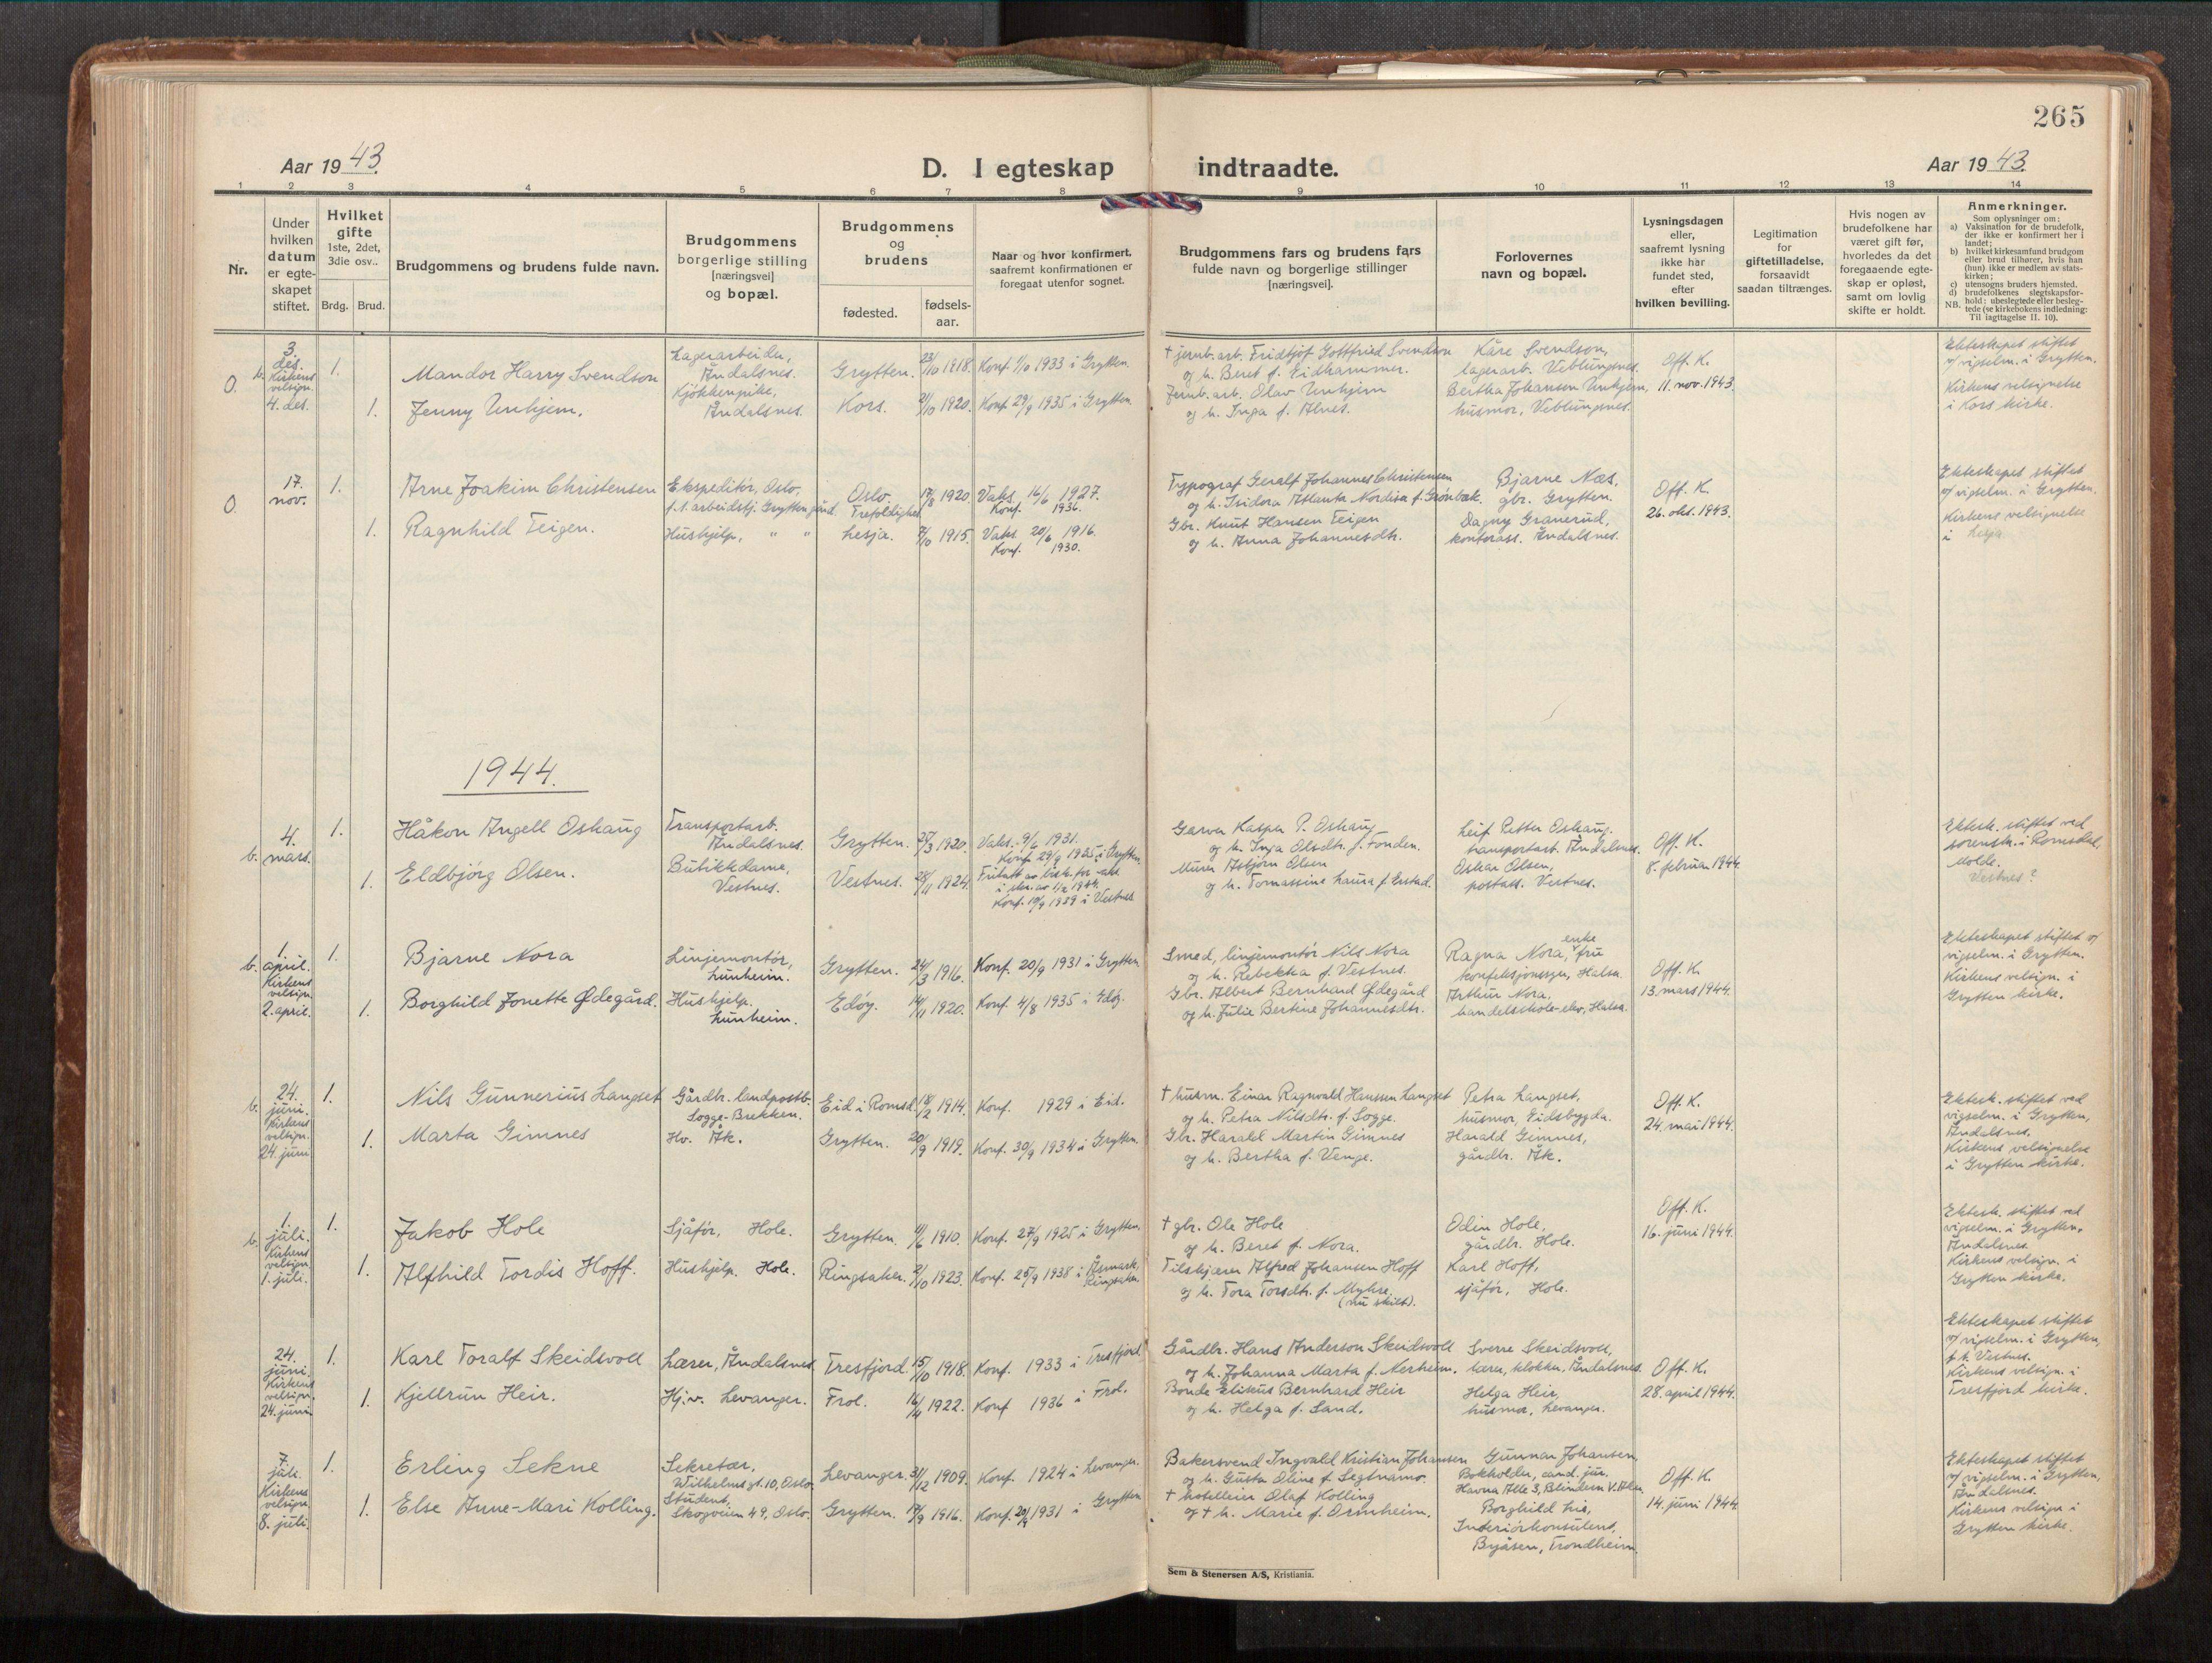 265
Aar 1943.
D. I egteskap indtraadte.
Aar 1943.
1 2 3 4 5 6 7 8 9 10 11 12 13 14
Nr.
Under
hvilken
datum
er egte-
skapet
stiftet.
Hvilket
gifte
1ste, 2det,
3die osv..
Brdg. Brud.
Brudgommens og brudens fulde navn.
Brudgommens
borgerlige stilling
[næringsvei]
og bopæl.
Brudgommens
og
brudens
fødested.
fødsels-
aar.
Naar og hvor konfirmert,
saafremt konfirmationen er
foregaat utenfor sognet.
Brudgommens fars og brudens fars
fulde navn og borgerlige stillinger
[næringsvei].
Forlovernes
navn og bopæl.
Lysningsdagen
eller,
saafremt lysning
ikke har
fundet sted,
efter
hvilken bevilling.
Legitimation
for
giftetilladelse,
forsaavidt
saadan tiltrænges.
Hvis nogen av
brudefolkene har
været gift før,
hvorledes da det
foregaaende egte-
skap er opløst,
samt om lovlig
skifte er holdt.
Anmerkninger.
Som oplysninger om:
a) Vaksination for de brudefolk,
der ikke er konfirmert her i
landet;
b) hvilket kirkesamfund brudgom
eller brud tilhører, hvis han
(hun) ikke er medlem av stats-
kirken;
c) utensogns bruders hjemsted.
d) brudefolkenes slegtskapsfor-
hold: ubeslegtede eller besleg-
NB. tede (se kirkebokens indledning:
Til iagttagelse II. 10).
O.
b. 3.
des.
Kirkens
velsign.
4. des.
1.
Mandor Harry Svendson
Lagerarbeider,
Åndalsnes.
Grytten. 23/10 1918. Konf. 1/10 1933 i Grytten.
† jernb.arb. Fridtjof Gottfried Svendson
og h. Beret f. Eidhammer.
Kåre Svendson,
lagerarb. Veblungsnes.
Off. K.
11. nov. 1943.
Ekteskapet stiftet
v/ vigselm. i Grytten.
Kirkens velsignelse
i Kors kirke.
1.
Jenny Unhjem.
Kjøkkenpike,
Åndalsnes.
Kors. 21/10 1920. Konf. 29/9 1935 i Grytten.
Jernb.arb. Olav Unhjem
og h. Inga f. Alnes.
Bertha Johansen Unhjem,
husmor, Veblungsnes.
O.
17.
nov.
1.
Arne Joakim Christensen
Ekspeditør, Oslo,
f.t. arbeidstj. Grytten gård.
Oslo.
Trefoldighet
17/8 1920. Vaks. 16/6 1927.
Konf. 1936.
Typograf Geralf Johannes Christensen
og h. Isidora Atlanta Nordisa f. Grønbæk.
Bjarne Næs.
gbr. Grytten.
Off. K.
26. okt. 1943.
Ekteskapet stiftet
v/ vigselm. i Grytten.
Kirkens velsignelse
i Lesja.
1.
Ragnhild Teigen.
Hushjelp, " "
Lesja. 7/10 1915. Vaks. 20/6 1916.
Konf. 1930.
Gbr. Knut Hansen Teigen
og h. Anna Johannesdtr.
Dagny Granerud,
kontorass. Åndalsnes.
1944.
b. 4.
mars.
1.
Håkon Angell Oshaug
Transportarb.
Åndalsnes.
Grytten. 25/3 1920. Vaks. 9/6 1931.
Konf. 29/9 1935 i Grytten.
Garver Kasper P. Oshaug
og h. Inga Olsdtr. f. Fonden.
Leif Petter Oshaug.
transportarb. Åndalsnes.
Off. K.
8. februar 1944.
Ektesk. stiftet ved
sorensk. i Romsdal,
Molde.
Vestnes?
1.
Eldbjörg Olsen.
Butikkdame,
Vestnes.
Vestnes. 28/11 1924.
Konf. 10/9 1939 i Vestnes.
Murer Asbjørn Olsen
og h. Tomassine Laura f. Erstad.
Oskar Olsen,
postass. Vestnes.
b. 1.
april.
Kirkens
velsign.
2. april.
1.
Bjarne Nora
Linjemontør,
Lunheim.
Grytten. 24/3 1916. Konf. 20/9 1931 i Grytten
Smed, linjemontør Nils Nora
og h. Rebekka f. Vestnes.
Ragna Nora, enke fru
konfeksjonssyer, Halsa.
Off. K.
13. mars 1944.
Ekteskapet stiftet v/
vigselm. i Grytten.
Kirkens velsign. i
Grytten kirke.
1.
Borghild Jonette Ødegård.
Hushjelp.
Lunheim.
Edøy. 14/11 1920. Konf. 4/8 1935 i Edøy.
Gbr. Albert Bernhard Ødegård
og h. Julie Bertine Johannesdtr.
Arthur Nora,
handelsskole-elev, Halsa.
b. 24.
juni.
Kirkens
velsign.
24. juni
1.
Nils Gunnerius Langset
Gårdbr. landpostb.
Sogge-Brekken.
Eid i Romsd. 18/2 1914. Konf. 1929 i Eid.
† husm. Einar Ragnvald Hanssen Langset
og h. Petra Nilsdtr. f. Sogge.
Petra Langset,
husmor, Eidsbygda.
Off. K.
24. mai 1944.
Ektesk. stiftet ved
vigselm. i Grytten,
Åndalsnes.
Kirkens velsignelse
i Grytten kirke.
1.
Marta Gimnes
Hv. Åk.
Grytten. 20/9 1919. Konf. 30/9 1934 i Grytten.
Gbr. Harald Martin Gimnes
og h. Bertha f. Venge.
Harald Gimnes,
gårdbr. Åk.
b. 1.
juli.
Kirkens
velsign.
1. juli.
1.
Jakob Hole
Sjåfør, Hole.
Grytten. 11/6 1910. Konf. 27/9 1925 i Grytten.
† gbr. Ole Hole
og h. Beret f. Nora.
Odin Hole,
gårdbr. Hole.
Off. K.
16. juni 1944.
Ektesk. stiftet ved
vigselm. i Grytten,
Åndalsnes.
Kirkens velsign. i
Grytten kirke.
1.
Alfhild Tordis Hoff.
Hushjelp. Hole.
Ringsaker. 2/10 1923. Konf. 25/9 1938 i Åsmark,
Ringsaker.
Tilskjærer Alfred Johansen Hoff
og h. Tora Torsdtr. f. Myhre.
(nu skilt).
Karl Hoff,
sjåfør, Hole.
24.
juni.
Kirkens
velsign.
24. juni.
1.
Karl Toralf Skeidsvoll
Lærer, Åndalsnes.
Tresfjord. 15/10 1918. Konf. 1933 i Tresfjord.
Gårdbr. Hans Anderson Skeidsvoll
og h. Johanna Marta f. Nerheim.
Sverre Skeidsvoll,
lærer, klokker, Åndalsnes.
Off. K.
28. april 1944.
Ekteskapet stiftet
v/ vigselm. i Grytten,
p.t. Vestnes.
Kirkens velsign. i
Tresfjord kirke.
1.
Kjellrun Heir.
Hj.v. Levanger.
Frol. 16/4 1922. Konf 1936 i Frol.
Bonde Elikus Bernhard Heir
og h. Helga f. Sand.
Helga Heir,
husmor, Levanger.
7.
juli.
Kirkens
velsign.
8. juli.
1.
Erling Sekne
Sekretær,
Wilhelms gt. 10, Oslo.
Levanger. 31/12 1909. Konf. 1924 i Levanger.
Bakersvend Ingvald Kristian Johansen
og h. Gusta Oline f. Segtnamo.
Gunnar Johansen,
Bokholder, cand. jur.
Havna Alle 3, Blindern V. Aker.
Off. K.
14. juni 1944.
Ekteskapet stiftet
v/ vigselm. i Grytten,
Åndalsnes.
Kirkens velsign i
Grytten kirke.
1.
Else Anne-Mari Kolling.
Student,
Skogveien 49, Oslo.
Grytten. 17/9 1916. Konf. 20/9 1931 i Grytten
† hotelleier Olaf Kolling
og † h. Marie f. Ormheim.
Borghild Lie,
Interiørkonsulent,
Byåsen, Trondheim.
Sem & Stenersen A/S, Kristiania.